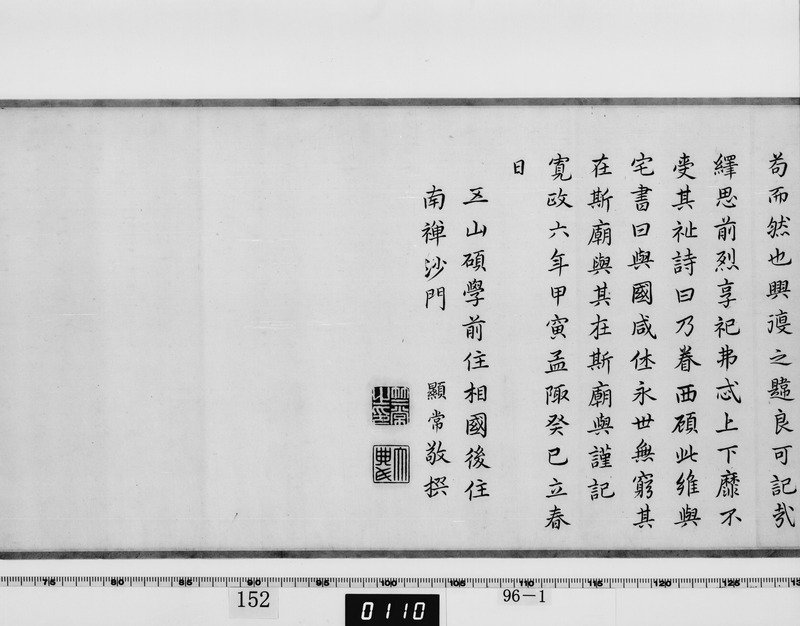 苟而然也興復之躅良可記哉
繹思前烈享祀弗忒上下靡不
受其祉詩曰乃眷西顧此維與
宅書曰與國咸休永世無窮其
在斯廟與其在斯廟與謹記
寛政六年甲寅孟陬癸巳立春
日
五山碩學前住相國後住
南禅沙門 顯常敬撰
竺常之印
大典氏
7,5 8,0 8,5 9,0 9,5 10,0 10,5 11,0 11,5 12,0 12,5 13
152
0110
96-1